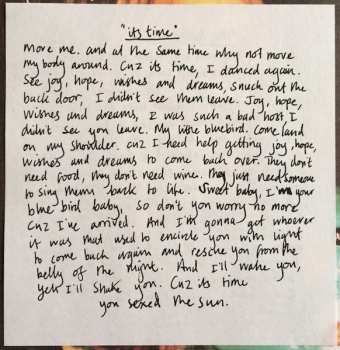 "its time"
Move me. and at the same time why not move
my body around. Cuz its time, I danced again.
See joy, hope, wishes and dreams, snuck out the
back door, I didn't see them leave. Joy, hope,
wishes and dreams, I was such a bad host I
didn't see you leave. My little bluebird. Come land
on my shoulder. cuz I need help getting joy, hope,
wishes and dreams to come back over. they don't
need food, they don't need wine. They just need someone
to sing them back to life. Sweet baby, I'm your
blue bird baby, so don't you worry no more
cuz I've arrived. And I'm gonna get whoever
it was that used to encircle you with light
to come back again and rescue you from the
belly of the night. And I'll wake you,
yeh I'll shake you. Cuz its time
you sexed the sun.